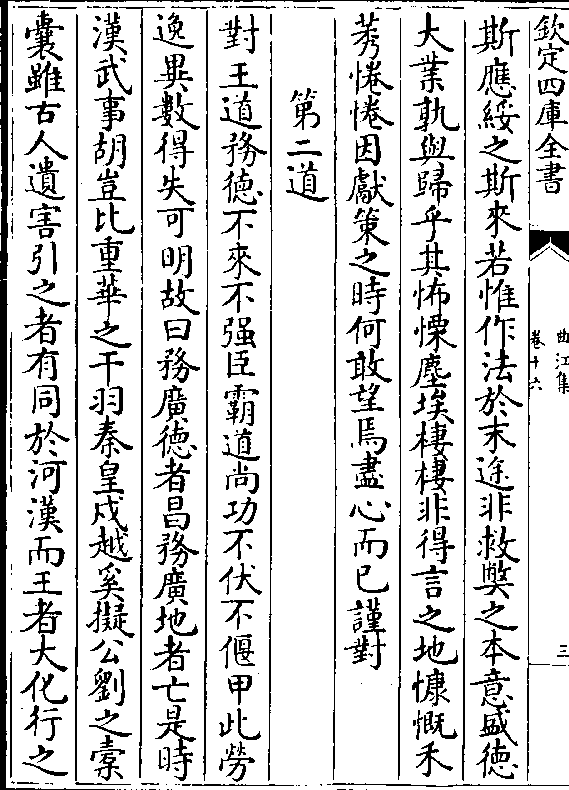 欽定四庫全書
曲江集
卷十六
三
斯應綏之斯來若惟作法於末途非救弊之本意盛德
大業孰與歸乎其怖慄塵埃棲棲非得言之地慷慨禾
莠惓惓因獻策之時何敢望焉盡心而已謹對
第二道
對王道務德不來不强臣霸道尚功不伏不偃甲此勞
逸異數得失可明故曰務廣德者昌務廣地者亡是時
漢武事胡豈比重華之干羽秦皇戍越奚擬公劉之橐
囊雖古人遺害引之者有同於河漢而王者大化行之